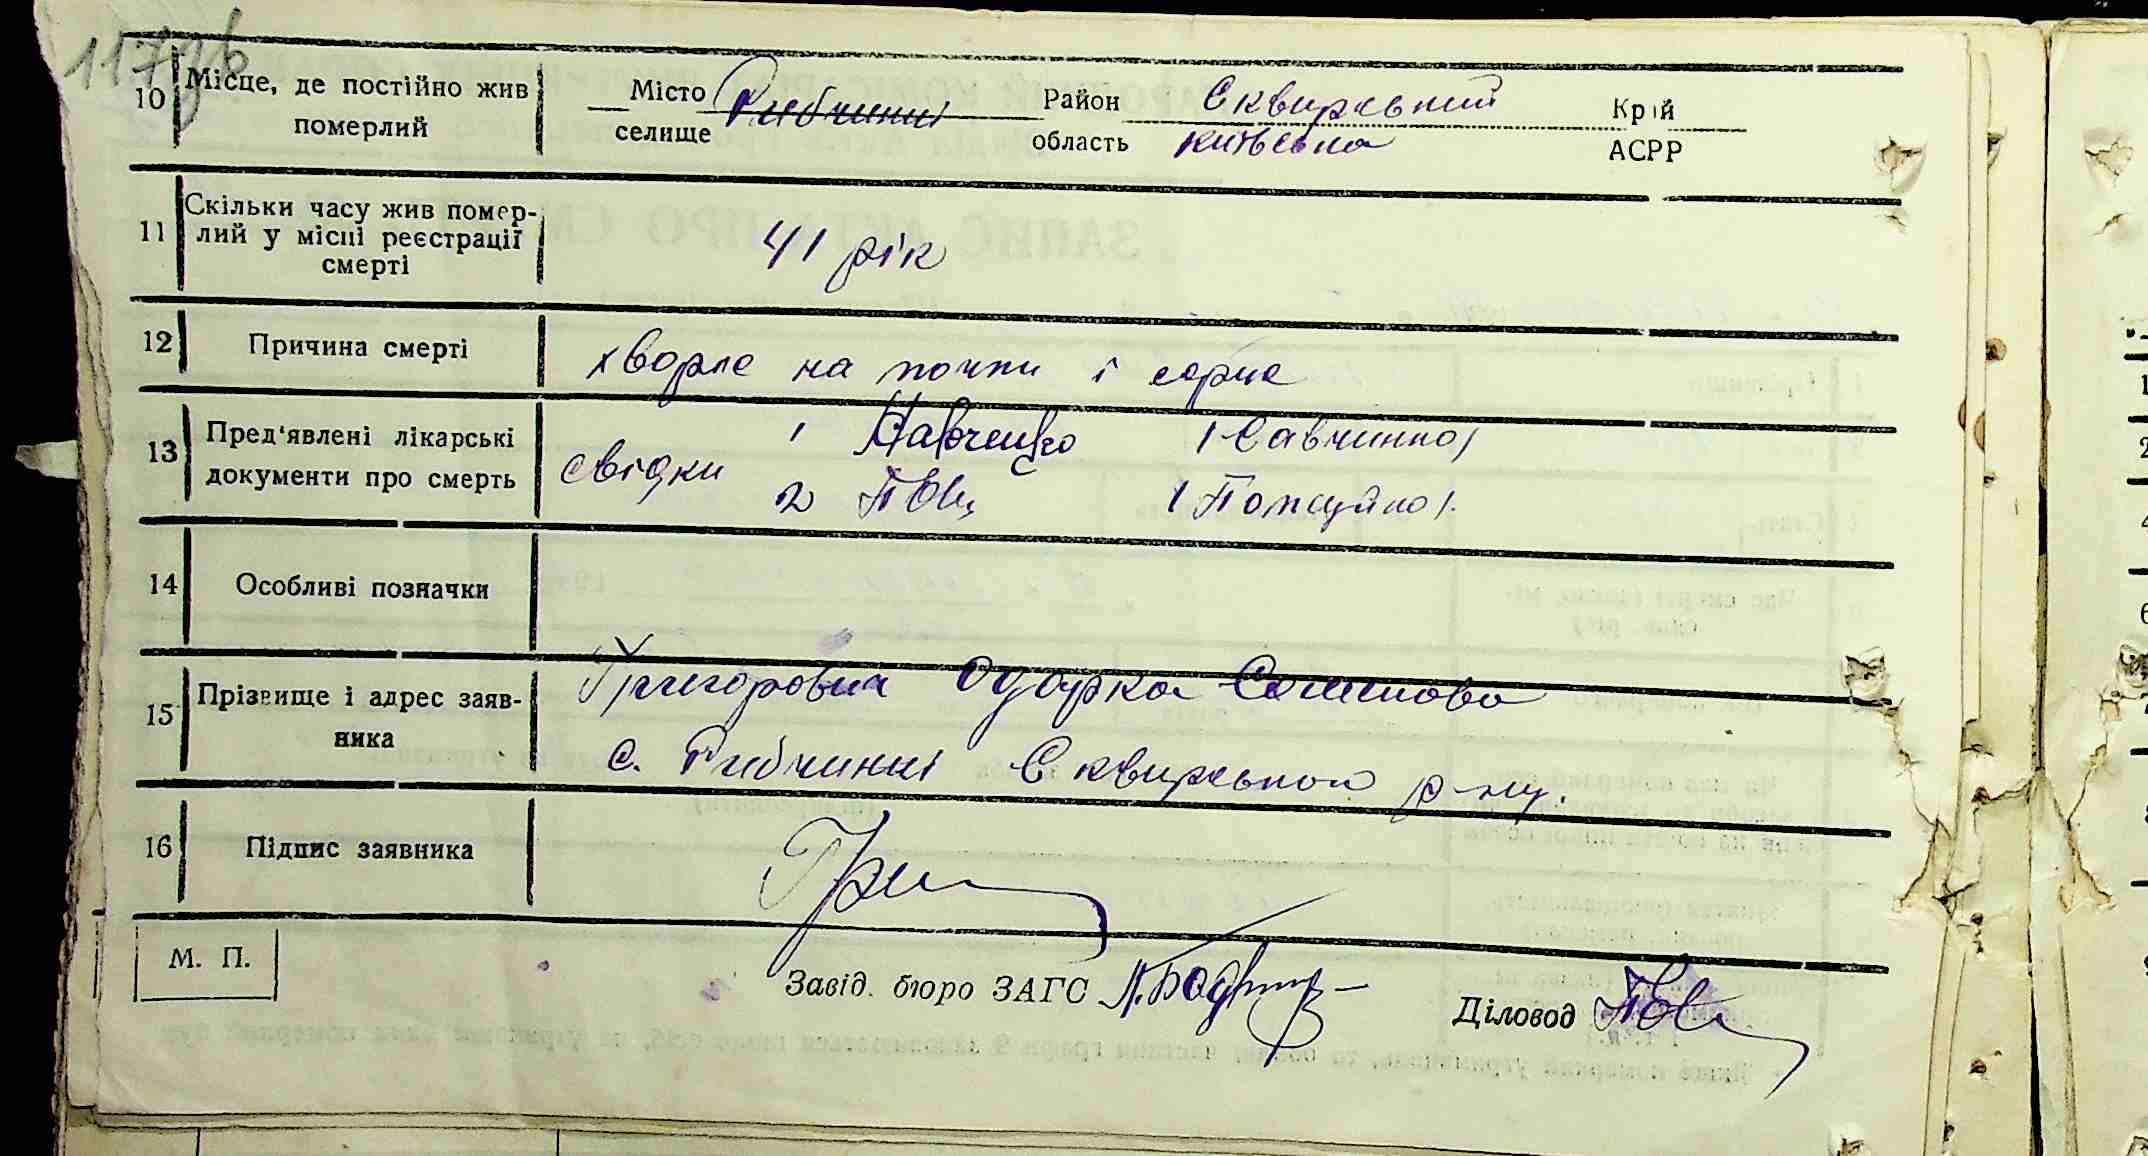 10 Місце, де постійно жив померлий
Місто селище Рибчинці Район Сквирський Крій
область Київська АСРР
11 Скільки часу жив помер-
лий у місці реєстрації
смерті
41 рік
12 Причина смерті
хворла на почки і серце
13 Пред'явлені лікарські
документи про смерть
свідки 1 Савченко (Савчинко)
2
14 Особливі позначки
15 Прізвище і адрес заяв-
ника
Григорович Одарка Семенова
с. Рибчинці Сквирського р-ну.
16 Підпис заявника
Гри
М. П.
Завід. бюро ЗАГС
Діловод